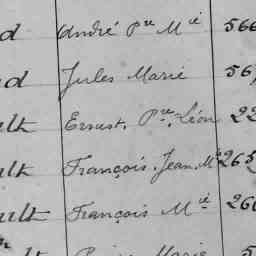 d André Pre Mie 566
d Jules Marie 56
ult Ernest, Pre. Léon 22
ult François. Jean. Mie 265
ult François Mie 266
Marie 5